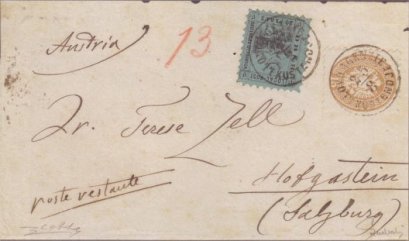 Austria
13
Dr. Terese Zell
poste restante
Hofgastein
(Salzburg)